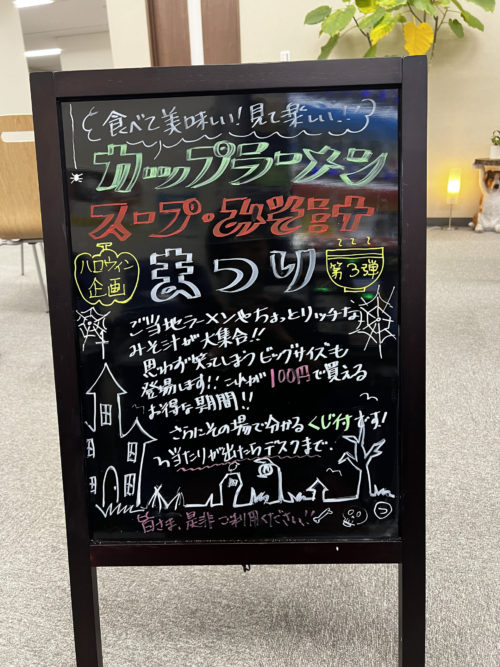 食べて美味しい！見て楽しい！！
カップラーメン
スープ・みそ汁
まつり
ハロウィン
企画
第3弾
ご当地ラーメンやちょっとリッチな
みそ汁が大集合！！
思わず笑ってしまうビッグサイズも
登場します！！これが100円で買える
お得な期間！！
さらにその場で分かるくじ付です！
当たりが出たらデスクまで。
皆さま、是非ご利用ください！！